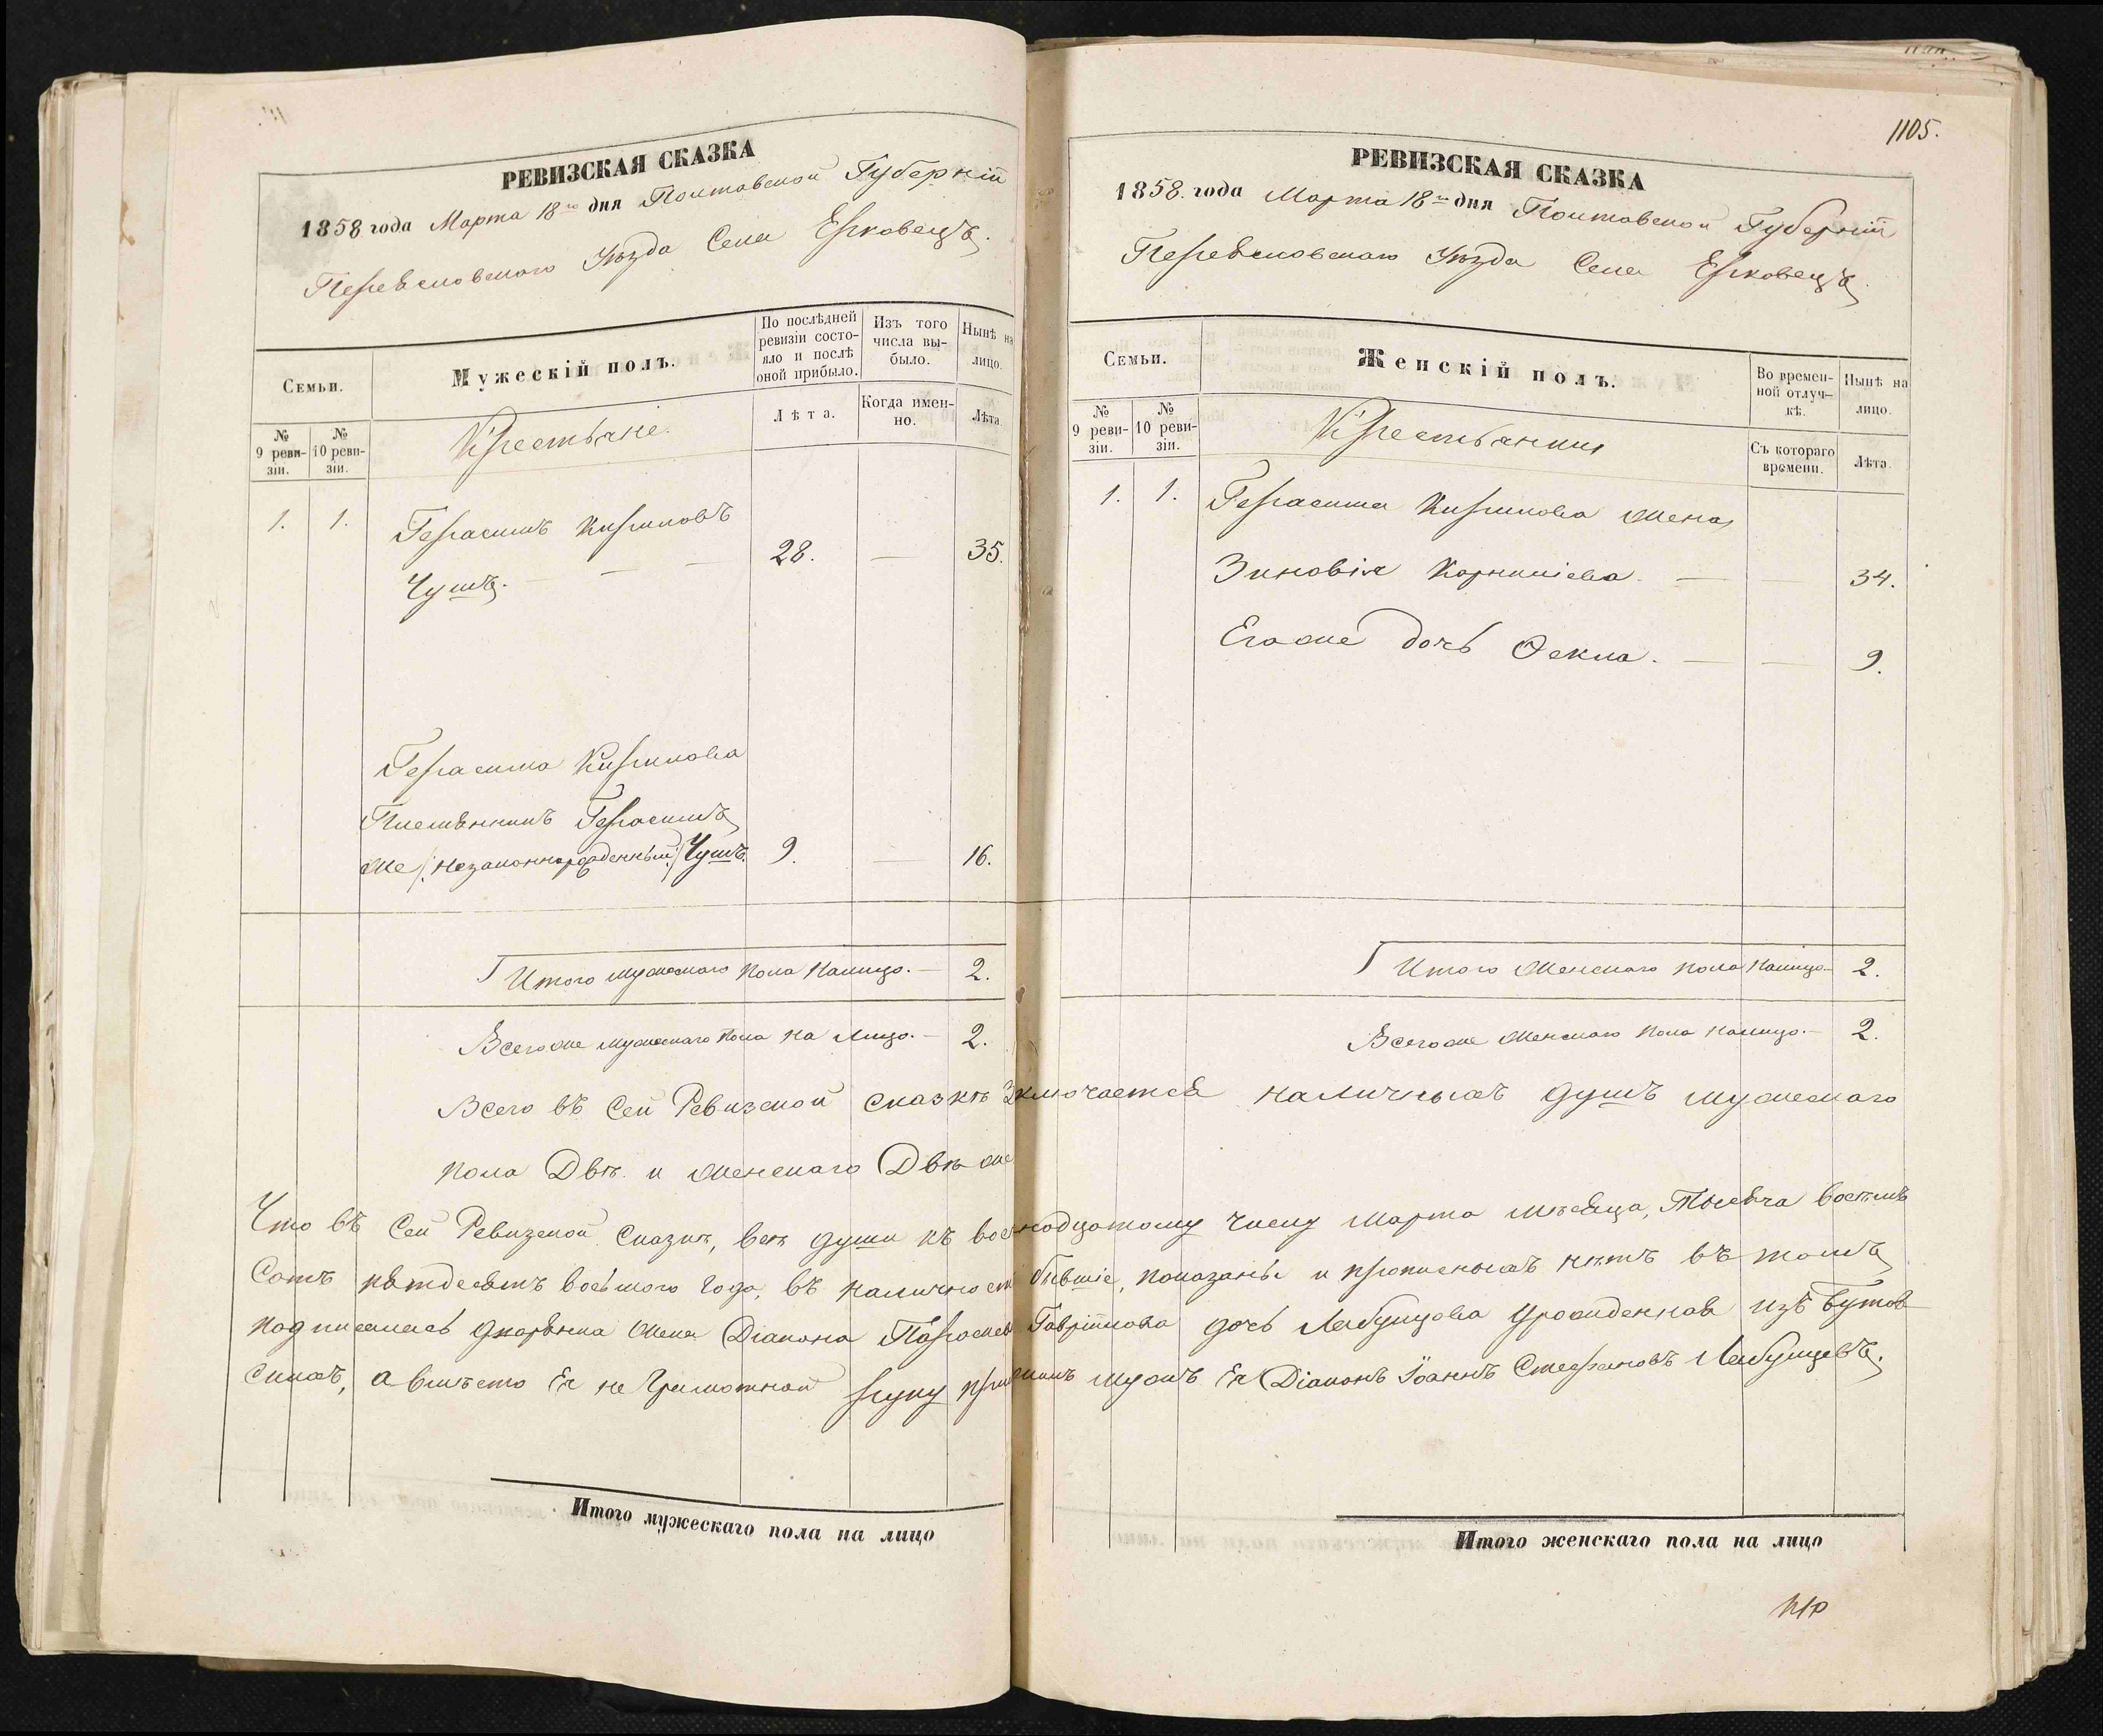 РЕВИЗСКАЯ СКАЗКА
1858 года Марта 18го дня Полтавской Губерніи
Переяславского Уѣзда Села Ерковецъ.
Семьи.
Мужескій полъ.
По послѣдней ревизіи состояло и послѣ оной прибыло.
Изъ того числа выбыло.
Нынѣ на лицо.
№ 9 ревизіи.
№ 10 ревизіи.
Крестьяне.
Лѣта.
Когда именно.
Лѣта.
1. 1. Герасимъ Кириловъ
Чушъ. — — — 28. — 35.
Герасима Кирилова
Племянникъ Герасимъ
же /: незаконнорожденный :/ Чушъ. 9. — 16.
Итого мужескаго пола налицо. — 2.
Всегоже мужескаго пола на лицо. — 2.
Итого мужескаго пола на лицо
1105.
РЕВИЗСКАЯ СКАЗКА
1858. года Марта 18го дня Полтавской Губерніи
Переяславскаго Уѣзда Села Ерковецъ.
Семьи.
Женскій полъ.
Во временной отлучкѣ.
Нынѣ на лицо.
№ 9 ревизіи.
№ 10 ревизіи.
Крестьянки
Съ котораго времени.
Лѣта.
1. 1. Герасима Кирилова жена
Зиновія Корниліева. — — 34.
Егоже дочь Ѳекла. — — 9.
Итого женскаго пола налицо — 2.
Всегоже женскаго пола налицо. — 2.
Всего въ сей Ревизской сказкѣ заключается наличныхъ душъ мужескаго
пола Двѣ. и женскаго Двѣ же
Что въ сей Ревизской сказкѣ, всѣ души къ восемнадцатому числу Марта мѣсяца, Тысяча восемъ
сотъ пятдесятъ восьмого года, въ наличности бывшіе, показаны и прописныхъ нѣтъ въ томъ
подписалась дворянка жена Діакона Параскева Гавріилова дочь Лебулцова урожденная изъ Бутов
скихъ, а вмѣсто Ея не Грамотной руку приложилъ мужъ Ея Діаконъ Іоаннъ Стефановъ
Итого женскаго пола на лицо